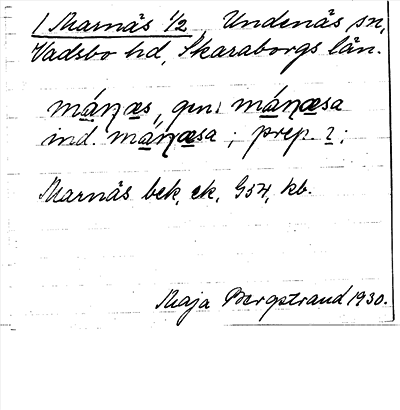 1 Marnäs 1/2, Undenäs sn,
Vadsbo hd, Skaraborgs län.
máņæs, gen. máņæsa
ind. máņæsa; prep. i;
Marnäs bek, ek, G54, kb.
Maja Bergstrand 1930.